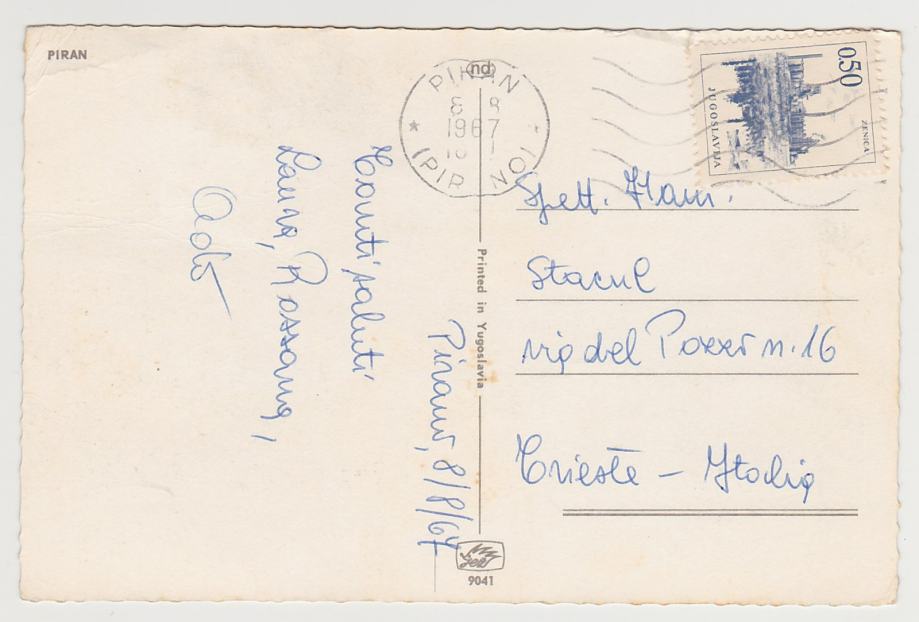 PIRAN
nd
PIRAN
8 8
1967
(PIR NO)
0.50
JUGOSLAVIJA
ZENICA
Pirano, 8/8/67
Tanti saluti
Laura, Rossana,
Ado
Printed in Yugoslavia
Spett. Fam.
Stacul
via del Pozzo n. 16
Trieste - Italia
9041